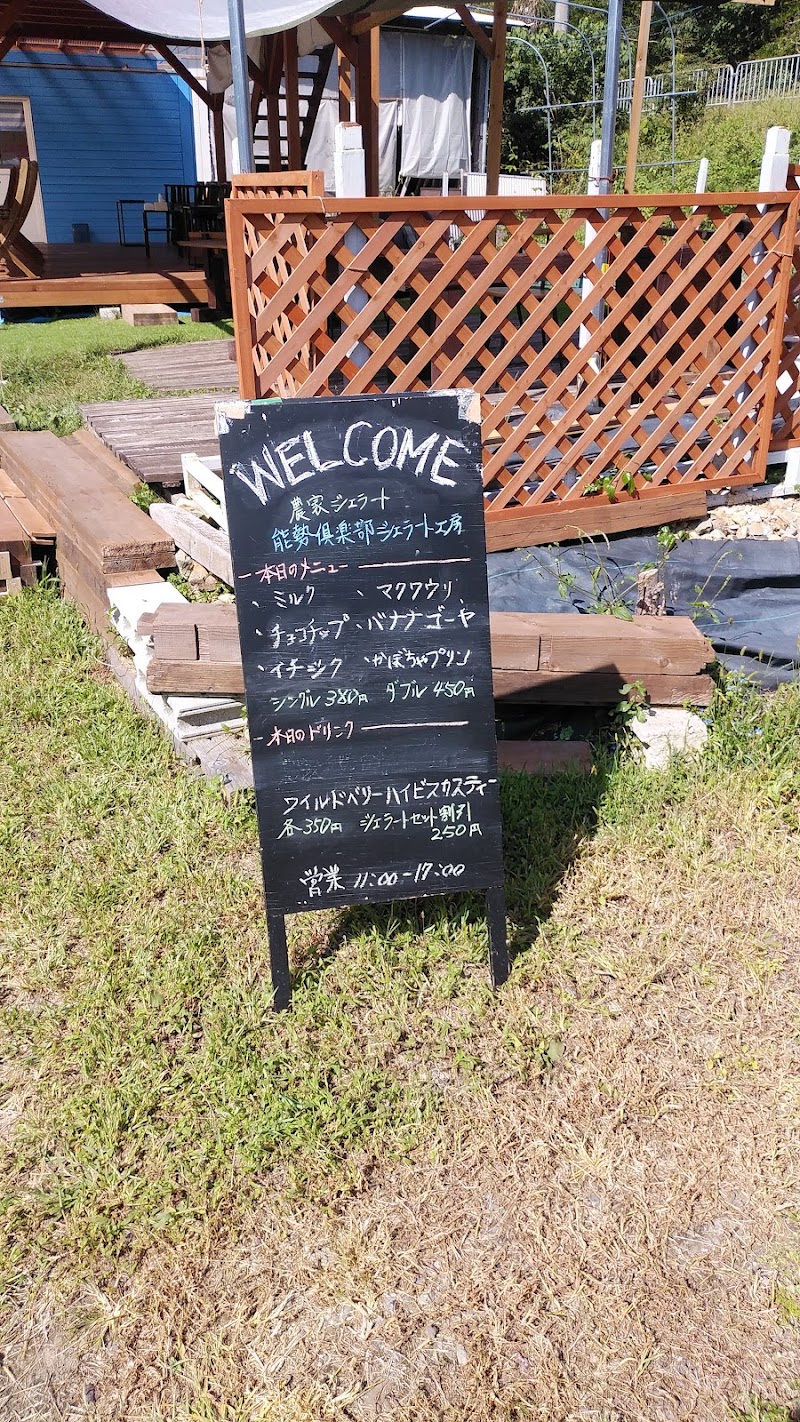 WELCOME
農家ジェラート
能勢倶楽部ジェラート工房
本日のメニュー
、ミルク 、マクワウリ
、チョコチップ 、バナナゴーヤ
、イチジク 、かぼちゃプリン
シングル 380円 ダブル 450円
本日のドリンク
ワイルドベリーハイビスカスティー
各350円 ジェラートセット割引
250円
営業 11:00-17:00